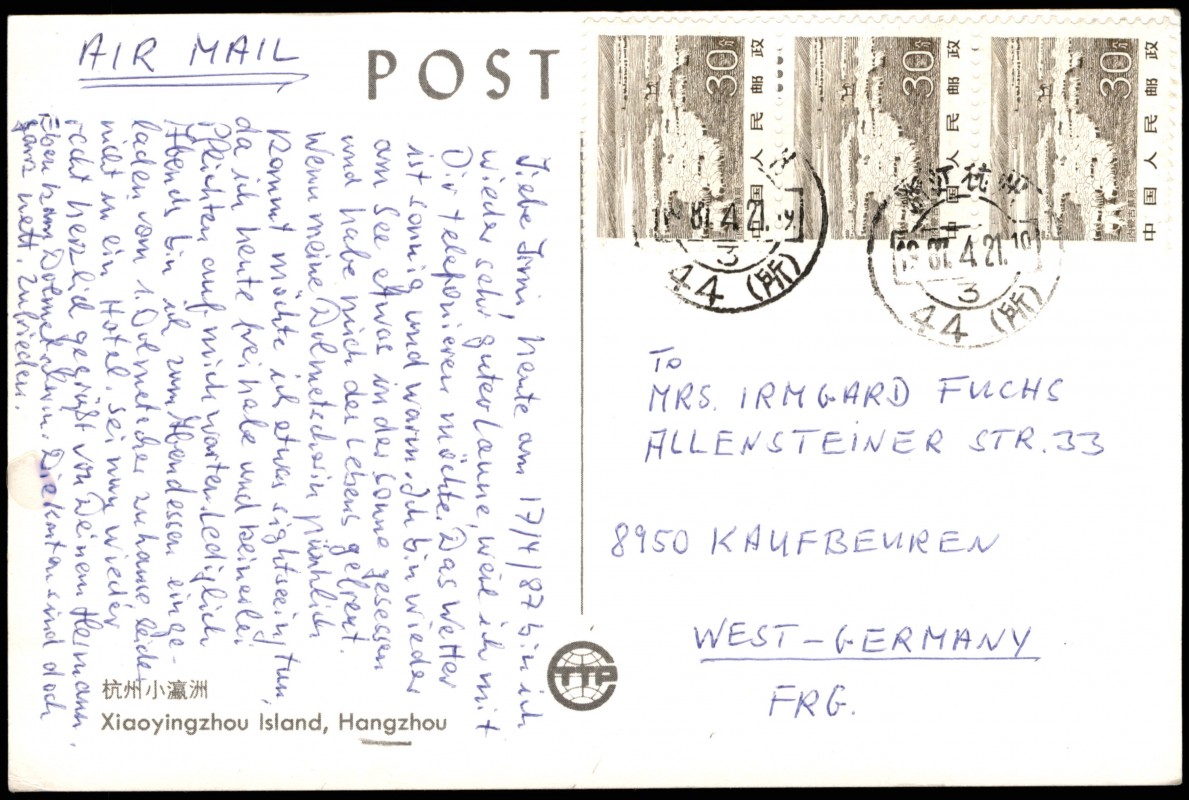 AIR MAIL
POST
30分
中国人民邮政
30分
中国人民邮政
30分
中国人民邮政
87.4.21.19
3
44 (所)
87.4.21.10
3
44 (所)
Liebe Immi, heute am 17/4/87 bin ich
wieder sehr guter Laune, weil ich mit
Dir telefonieren möchte. Das Wetter
ist sonnig und warm. Ich bin wieder
am See etwas in der Sonne gesessen
und habe mich des Lebens gefreut.
Wenn meine Dolmetscherin pünktlich
kommt möchte ich etwas sightseeing tun,
da ich heute frei habe und keinerlei
Pflichten auf mich warten. Lediglich
Abends bin ich zum Abendessen einge-
laden vom 1. Dolmetscher zuhause leider
nicht in ein Hotel. sei nun wieder
recht herzlich gegrüßt von Deinem Hermann.
Eben kam Dolmetscherin. Die Karten sind doch
ganz nett. Zufrieden.
To
MRS. IRMGARD FUCHS
ALLENSTEINER STR. 33
8950 KAUFBEUREN
WEST-GERMANY
FRG.
TTP
杭州小瀛洲
Xiaoyingzhou Island, Hangzhou